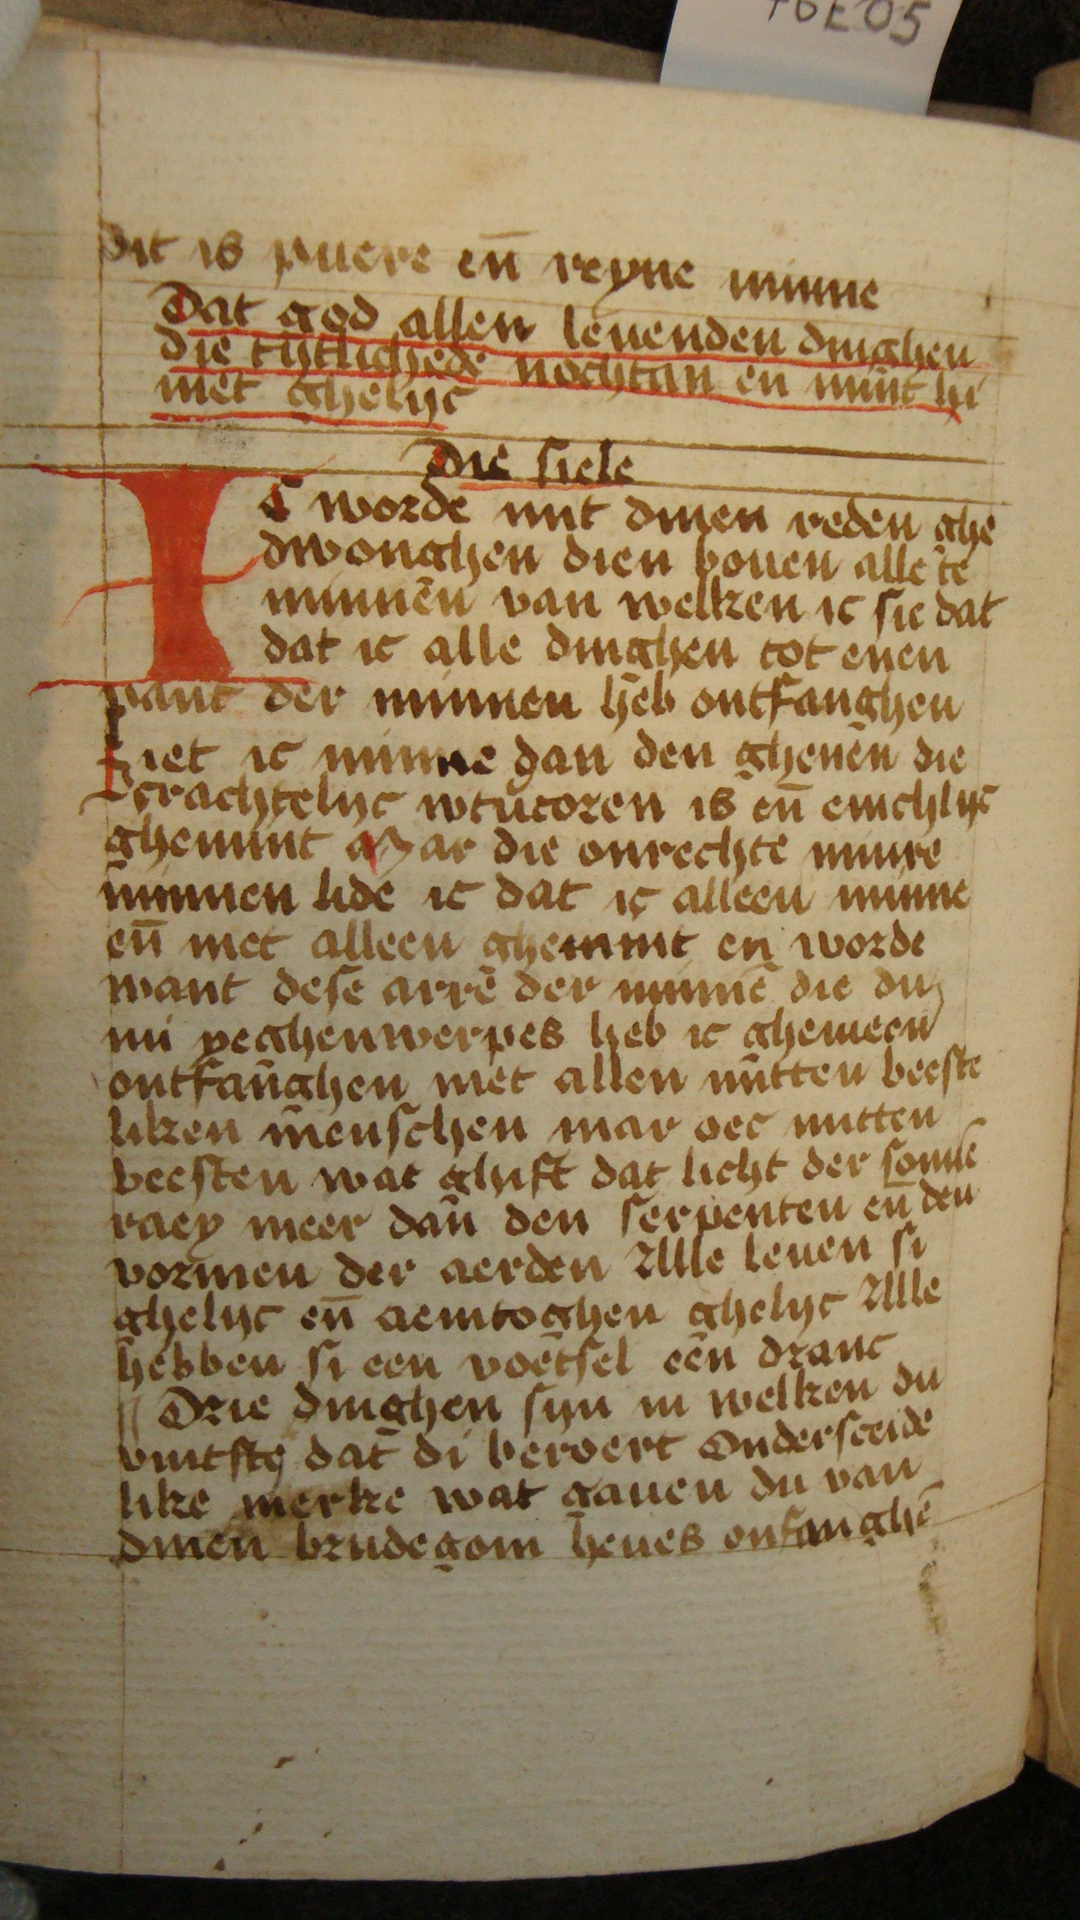 76E05
Dit is puere en̄ reyne minne
Dat god allen leuenden dinghen
die tytlichede nochtan en mint hi
niet ghelyc
Die siele
IC worde mit dinen reden ghe
dwonghen dien bouen alle te
minnēn van welken ic sie dat
dat ic alle dinghen tot enen
pant der minnen heb ontfanghen
Siet ic minne dan den ghenēn die
crachtelyc wtūcoren is en̄ einchlyc
ghemint Mar die onrechte minre
minnen lide ic dat ic alleen minne
en̄ niet alleen ghemint en worde
want dese arrē der minnē die du
mi yeghenwerpes heb ic ghemeen
ontfan̄ghen met allen mitten beeste
liken menschen mar oec mitten
beesten wat ghift dat licht der sonnē
raey meer dan̄ den serpenten en̄ den
vormen der aerden Alle leuen si
ghelyc en̄ aemtoghen ghelyc Alle
hebben si een voetsel een dranc
Drie dinghen syn in welken du
vintste dat di beroert Ondersceide
like merke wat gauen du van
dinen brudegom heues onfanghē